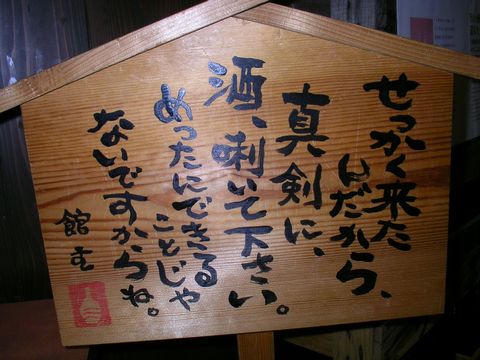 せっかく来た
んだから、
真剣に、
酒、唎いて下さい。
めったにできる
ことじゃ
ないですからね。
館主